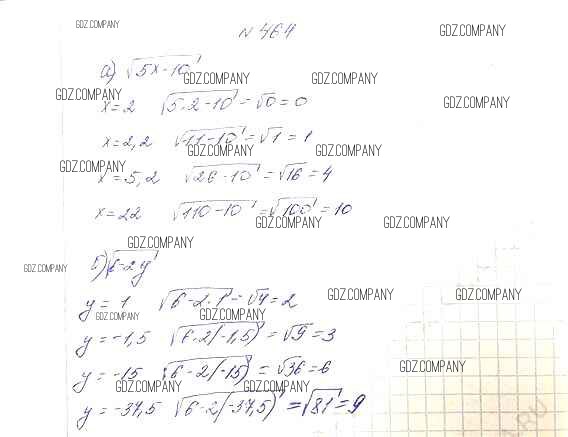 GDZ.COMPANY
№ 464
GDZ.COMPANY
а) √5x-10
GDZ.COMPANY GDZ.COMPANY
GDZ.COMPANY
x=2 √5·2-10 = √0 = 0
GDZ.COMPANY
x=2,2 √11-10 = √1 = 1
GDZ.COMPANY GDZ.COMPANY
GDZ.COMPANY
x=5,2 √26-10 = √16 = 4
x=22 √110-10 = √100 = 10
GDZ.COMPANY GDZ.COMPANY
GDZ.COMPANY
б) √6-2y
GDZ.COMPANY
y=1 √6-2·1 = √4 = 2
GDZ.COMPANY GDZ.COMPANY
GDZ.COMPANY GDZ.COMPANY
y=-1,5 √6-2(-1,5) = √9 = 3
y=-15 √6-2(-15) = √36 = 6
GDZ.COMPANY
GDZ.COMPANY GDZ.COMPANY
y=-37,5 √6-2(-37,5) = √81 = 9